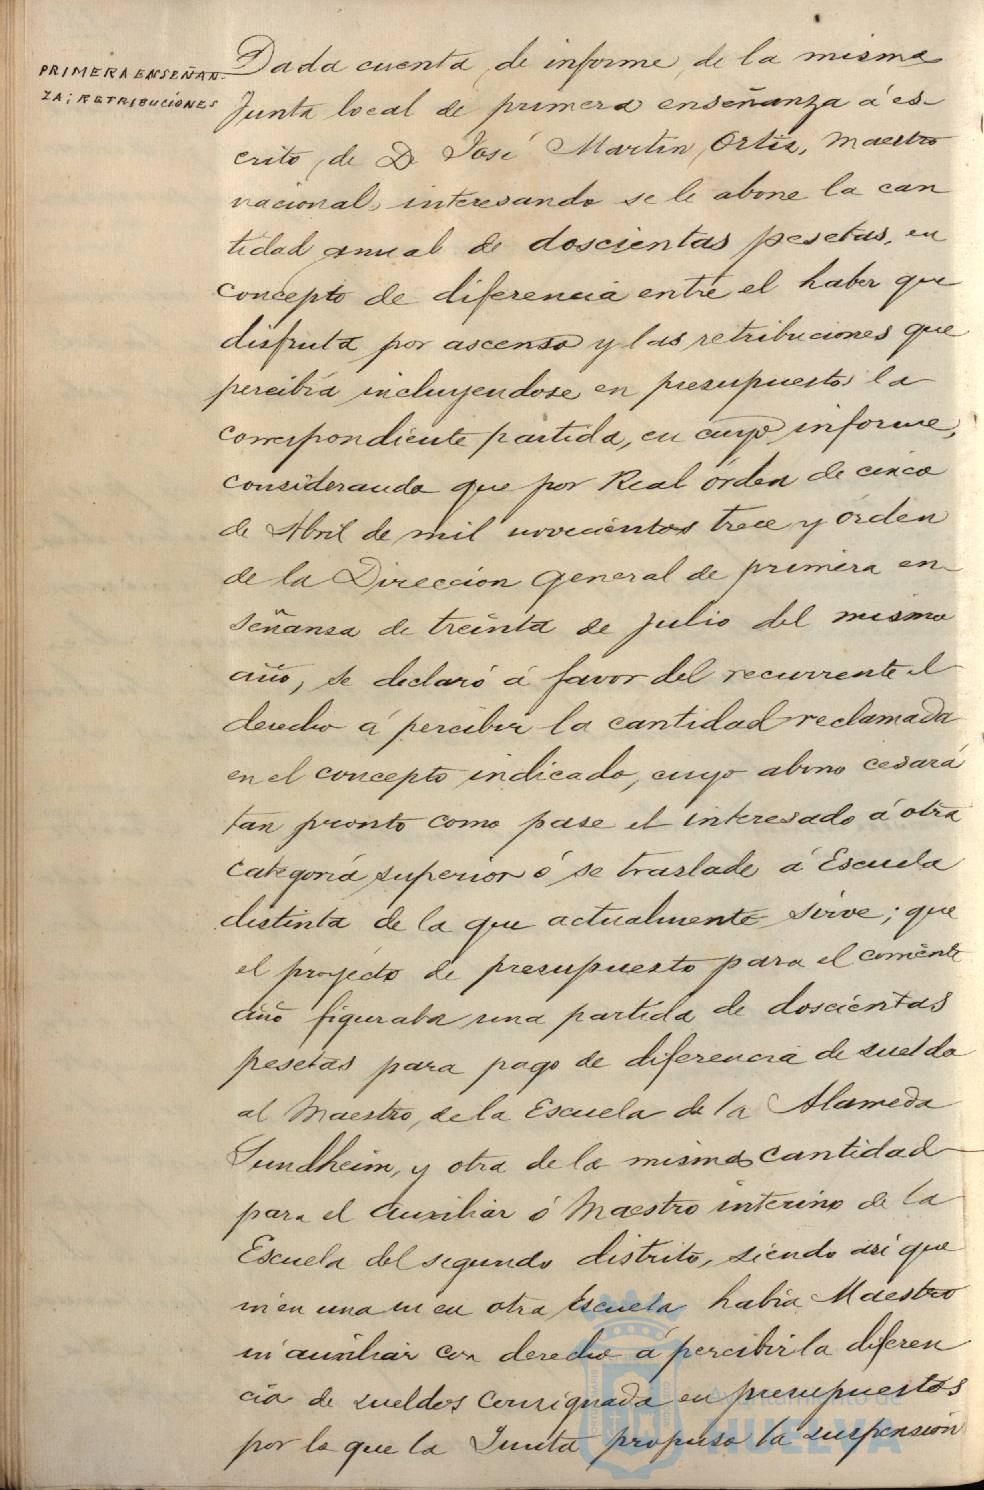 PRIMERA ENSEÑAN-
ZA; RETRIBUCIONES
Dada cuenta de informe de la misma
Junta local de primera enseñanza á es-
crito de D. José Martin Ortiz, maestro
nacional, interesando se le abone la can
tidad anual de doscientas pesetas, en
concepto de diferencia entre el haber que
disfruta por ascenso y las retribuciones que
percibía incluyendose en presupuesto la
correspondiente partida, en cuyo informe,
considerando que por Real órden de cinco
de Abril de mil novecientos trece y órden
de la Dirección General de primera en-
señansa de treinta de Julio del mismo
año, se declaró á favor del recurrente el
derecho á percibir la cantidad reclamada
en el concepto indicado, cuyo abono cesará
tan pronto como pase el interesado á otra
categoría superior ó se traslade á Escuela
distinta de la que actualmente sirve; que
el proyecto de presupuesto para el corriente
año figuraba una partida de doscientas
pesetas para pago de diferencia de sueldo
al Maestro de la Escuela de la Alameda
Sundheim, y otra de la misma cantidad
para el Auxiliar ó Maestro interino de la
Escuela del segundo distrito, siendo así que
ni en una ni en otra escuela había Maestro
ni auxiliar con derecho á percibir la diferen
cia de sueldos consignada en presupuestos
por lo que la Junta propuso la suspensión
Ayuntamiento de
HUELVA